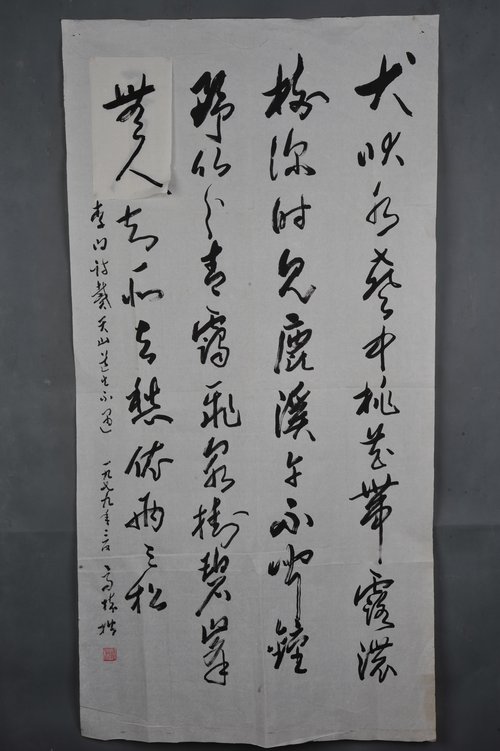 犬吠水聲中桃花帶露濃
樹深時見鹿溪午不聞鐘
野竹分青靄飛泉掛碧峯
無人知所去愁倚兩三松
李白訪戴天山道士不遇 一九七九年